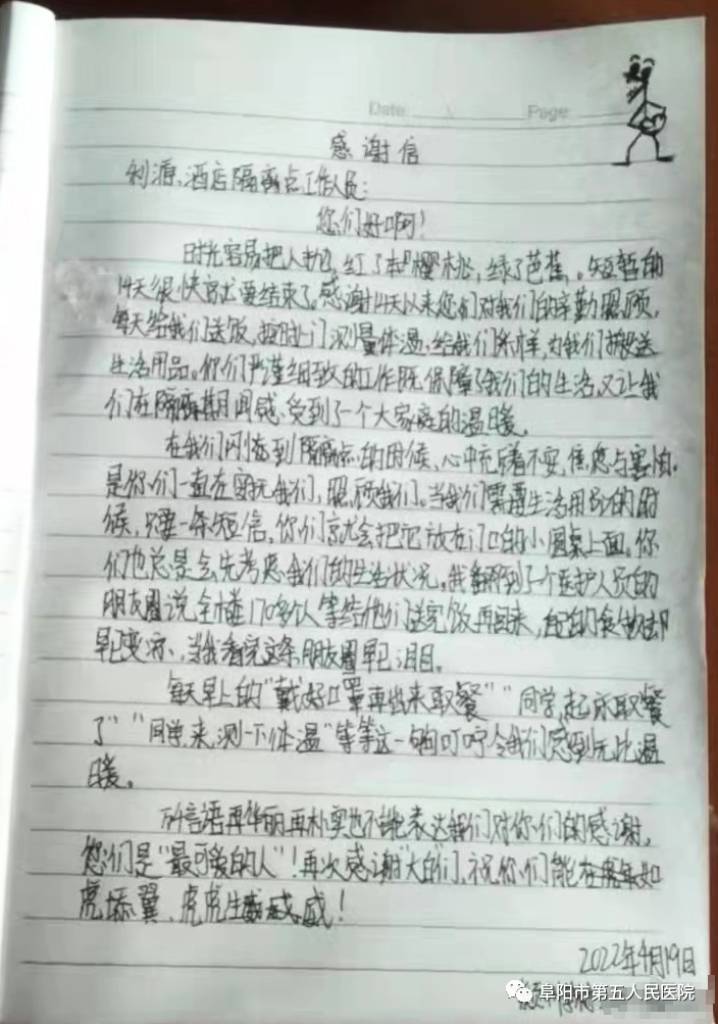 Date
Page
感谢信
利源酒店隔离点工作人员：
您们好啊！
时光容易把人抛，红了樱桃，绿了芭蕉。短暂的
14天很快就要结束了。感谢14天以来您们对我们的辛勤照顾，
每天给我们送饭，按时上门测量体温，给我们采样，为我们投送
生活用品。你们严谨细致的工作既保障了我们的生活，又让我
们在隔离期间感受到了一个大家庭的温暖。
在我们刚到隔离点的时候，心中充满着不安，焦虑与害怕。
是你们一直在安抚我们，照顾我们。当我们需要生活用品的时
候，只要一条短信，你们就会把它放在门口的小圆桌上面。你
们也总是会先考虑我们的生活状况。我翻到了一个医护人员的
朋友圈说全楼170多个人等给他们送完饭再回来，自己的食物却
早已变凉，当我看完这条朋友圈早已泪目。
每天早上的“戴好口罩再出来取餐”“同学，起床取餐
了”“同学，来测一下体温”等等这一句句叮咛令我们感到无比温
暖。
所有言语再华丽再朴实也不能表达我们对你们的感谢，
您们是“最可爱的人”！再次感谢“大白”们，祝你们能在虎年如
虎添翼、虎虎生威！
2022年4月19日
阜阳市第五人民医院